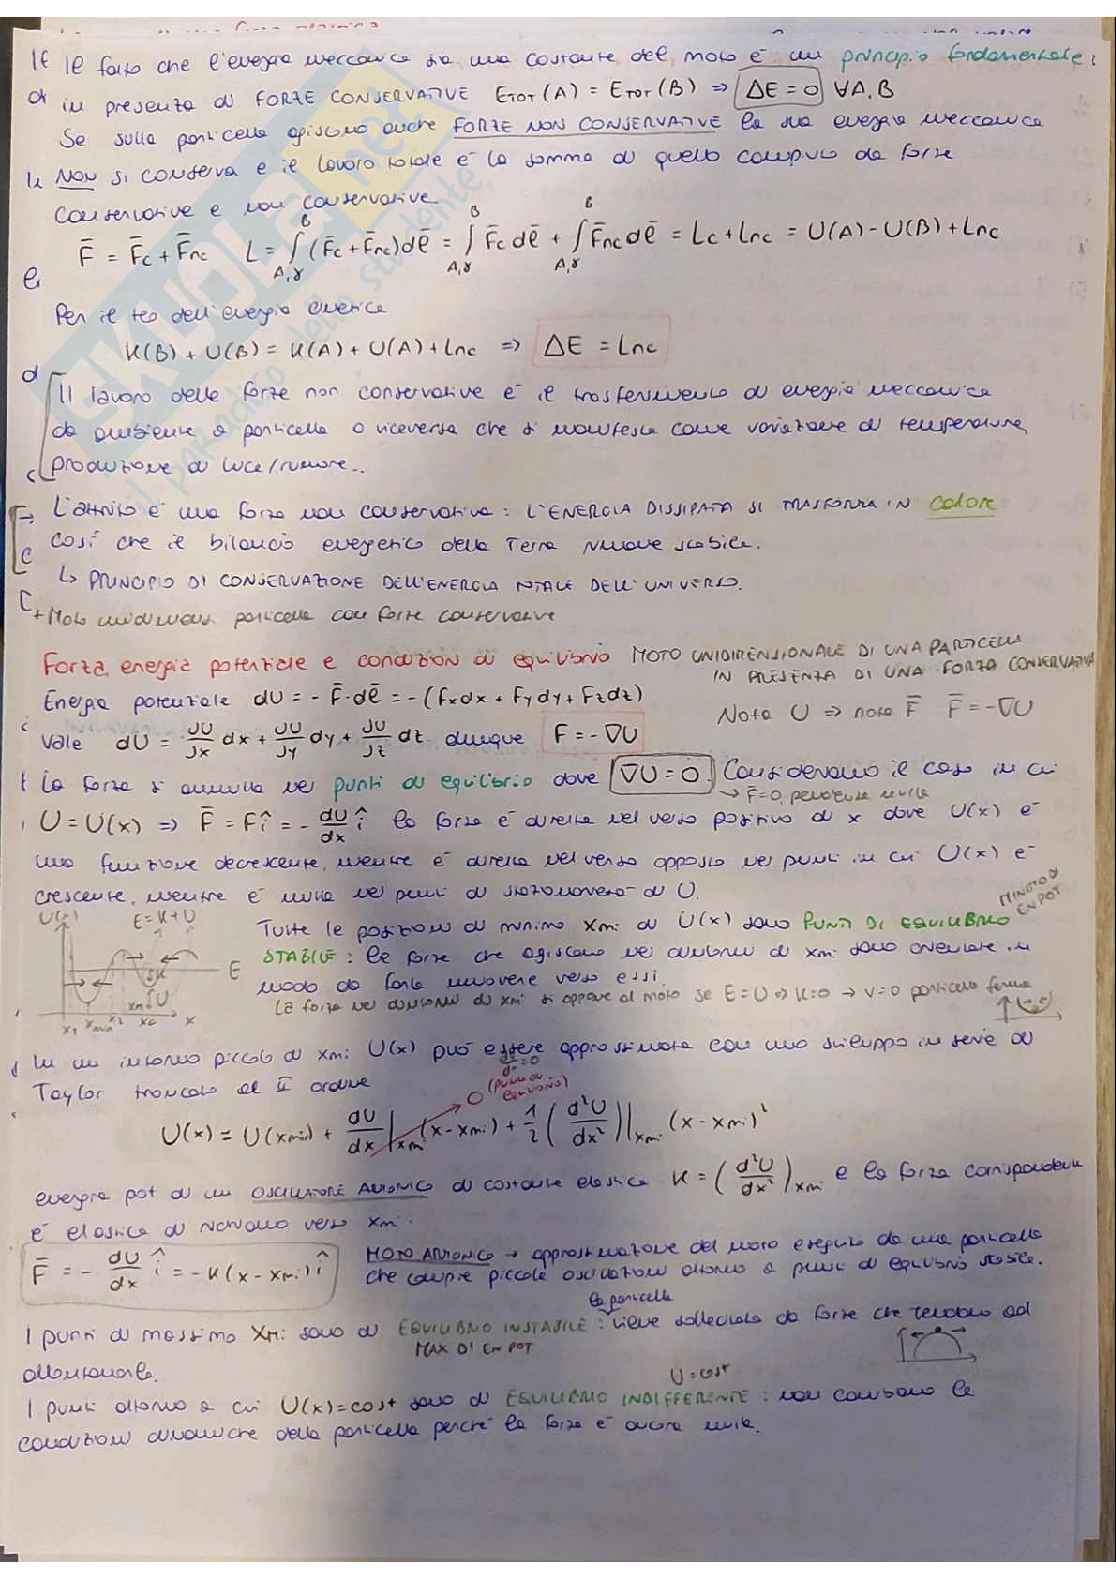 Il fatto che l'energia meccanica sia una costante del moto è un principio fondamentale:
in presenza di FORZE CONSERVATIVE E_TOT(A) = E_TOT(B) ⇒ ΔE = 0 ∀A,B
Se sulla particella agiscono anche FORZE NON CONSERVATIVE la sua energia meccanica
NON si conserva e il lavoro totale è la somma di quello compiuto da forze
conservative e non conservative
F̄ = F̄c + F̄nc L = ∫_{A,γ}^{B} (F̄c + F̄nc) dl̄ = ∫_{A,γ}^{B} F̄c dl̄ + ∫_{A,γ}^{B} F̄nc dl̄ = Lc + Lnc = U(A) - U(B) + Lnc
Per il teo dell'energia cinetica
K(B) + U(B) = K(A) + U(A) + Lnc ⇒ ΔE = Lnc
Il lavoro delle forze non conservative è il trasferimento di energia meccanica
da ambiente a particella o viceversa che si manifesta come variazione di temperatura,
produzione di luce/rumore..
L'attrito è una forza non conservativa: L'ENERGIA DISSIPATA SI TRASFORMA IN calore
così che il bilancio energetico della Terra rimane stabile.
↳ PRINCIPIO DI CONSERVAZIONE DELL'ENERGIA TOTALE DELL'UNIVERSO.
+ Moto unidimens particella con forze conservative
Forza, energia potenziale e condizioni di equilibrio MOTO UNIDIMENSIONALE DI UNA PARTICELLA
IN PRESENZA DI UNA FORZA CONSERVATIVA
Energia potenziale dU = - F̄·dl̄ = -(Fxdx + Fydy + Fzdz)
Nota U ⇒ nota F̄ F̄ = -∇U
Vale dU = ∂U/∂x dx + ∂U/∂y dy + ∂U/∂z dz dunque F = -∇U
La forza si annulla nei punti di equilibrio dove ∇U = 0. Consideriamo il caso in cui
→ F̄=0, pendenza nulla
U = U(x) ⇒ F̄ = Fî = - dU/dx î la forza è diretta nel verso positivo di x dove U(x) è
una funzione decrescente, mentre è diretta nel verso opposto nei punti in cui U(x) è
crescente, mentre è nulla nei punti di stazionarietà di U.
MINIMO DI
EN POT
U(x) E=K+U
Tutte le posizioni di minimo xmi di U(x) sono PUNTI DI EQUILIBRIO
STABILE: le forze che agiscono nei dintorni di xmi sono orientate in
E
modo da farla muovere verso essi.
La forza nei dintorni di xmi si oppone al moto se E=U ⇒ K=0 → v=0 particella ferma
x
In un intorno piccolo di xmi U(x) può essere approssimata con uno sviluppo in serie di
dU/dx=0
Taylor troncato al II ordine
0 (punto di equilibrio)
U(x) = U(xmi) + dU/dx|xmi (x-xmi) + 1/2 (d²U/dx²)|xmi (x-xmi)²
energia pot di un OSCILLATORE ARMONICO di costante elastica K = (d²U/dx²)xmi e la forza corrispondente
è elastica di richiamo verso xmi.
F̄ = - dU/dx î = -K(x-xmi) î
MOTO ARMONICO → approssimazione del moto eseguito da una particella
che compie piccole oscillazioni attorno a punti di equilibrio stabile.
la particella
I punti di massimo xMi sono di EQUILIBRIO INSTABILE: viene sollecitata da forze che tendono ad
MAX DI EN POT
allontanarla.
U=cost
I punti attorno a cui U(x)=cost sono di EQUILIBRIO INDIFFERENTE: non cambiano le
condizioni dinamiche della particella perché la forza è ancora nulla.